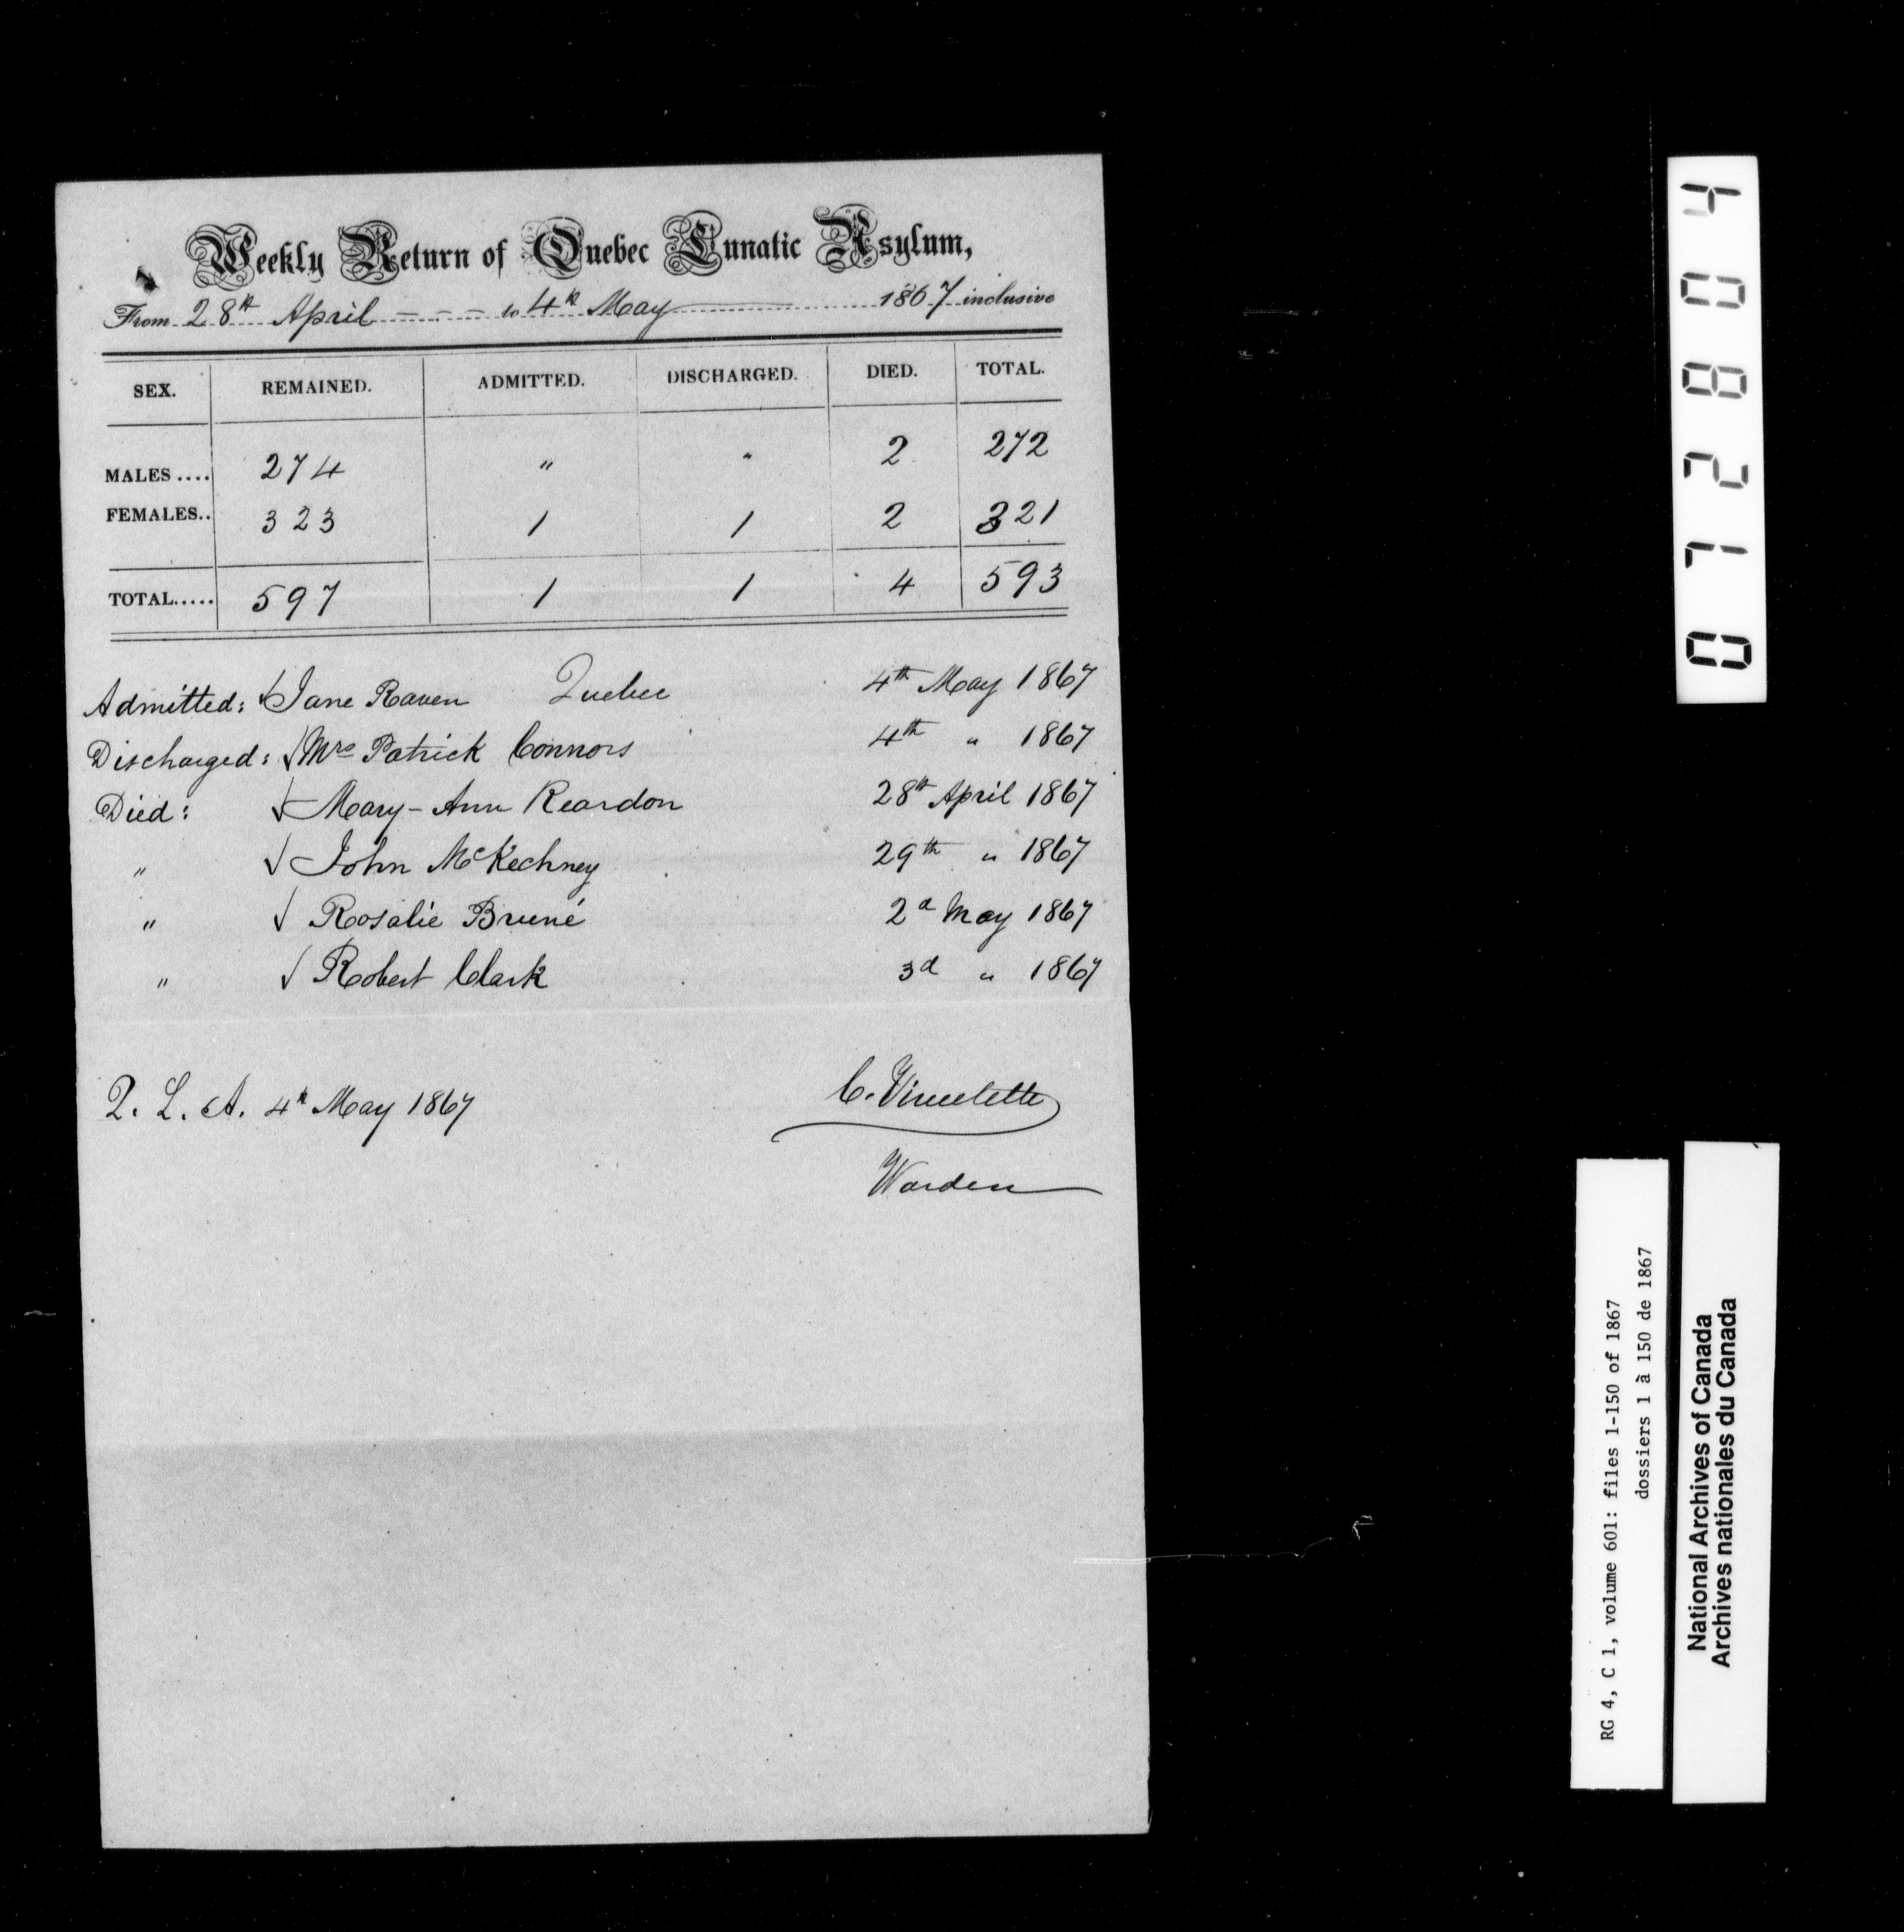 Weekly Return of Quebec Lunatic Asylum,
From 28th April - - - to 4th May 1867 inclusive
SEX. REMAINED. ADMITTED. DISCHARGED. DIED. TOTAL.
MALES .... 274 " " 2 272
FEMALES.. 323 1 1 2 321
TOTAL..... 597 1 1 4 593
Admitted: √ Jane Raven Quebec 4th May 1867
Discharged: √ Mrs Patrick Connors 4th " 1867
Died: √ Mary-Ann Reardon 28th April 1867
" √ John McKechney 29th " 1867
" √ Rosalie Bruné 2d May 1867
" √ Robert Clark 3d " 1867
Q. L. A. 4th May 1867
C. Vincelette
Warden
072804
RG 4, C 1, volume 601: files 1-150 of 1867
dossiers 1 à 150 de 1867
National Archives of Canada
Archives nationales du Canada